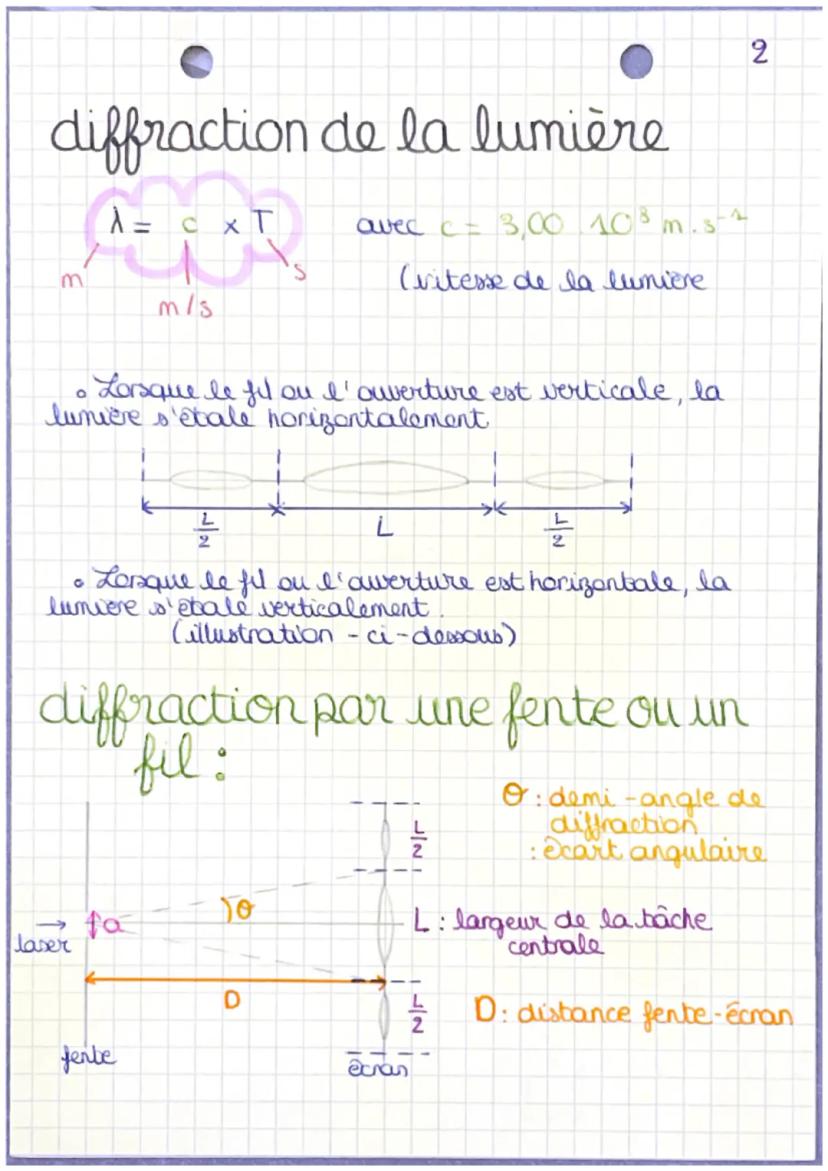 2
diffraction de la lumière
λ = c x T
m
m/s
s
avec c = 3,00 10⁸ m.s⁻¹
(vitesse de la lumière
• Lorsque le fil ou l'ouverture est verticale, la
lumière s'étale horizontalement
L/2
L
L/2
• Lorsque le fil ou l'ouverture est horizontale, la
lumière s'étale verticalement.
(illustration - ci-dessous)
diffraction par une fente ou un
fil :
θ : demi-angle de
diffraction
: écart angulaire
L/2
θ
a
laser
L : largeur de la tâche
centrale
D
L/2
D : distance fente-écran
fente
écran